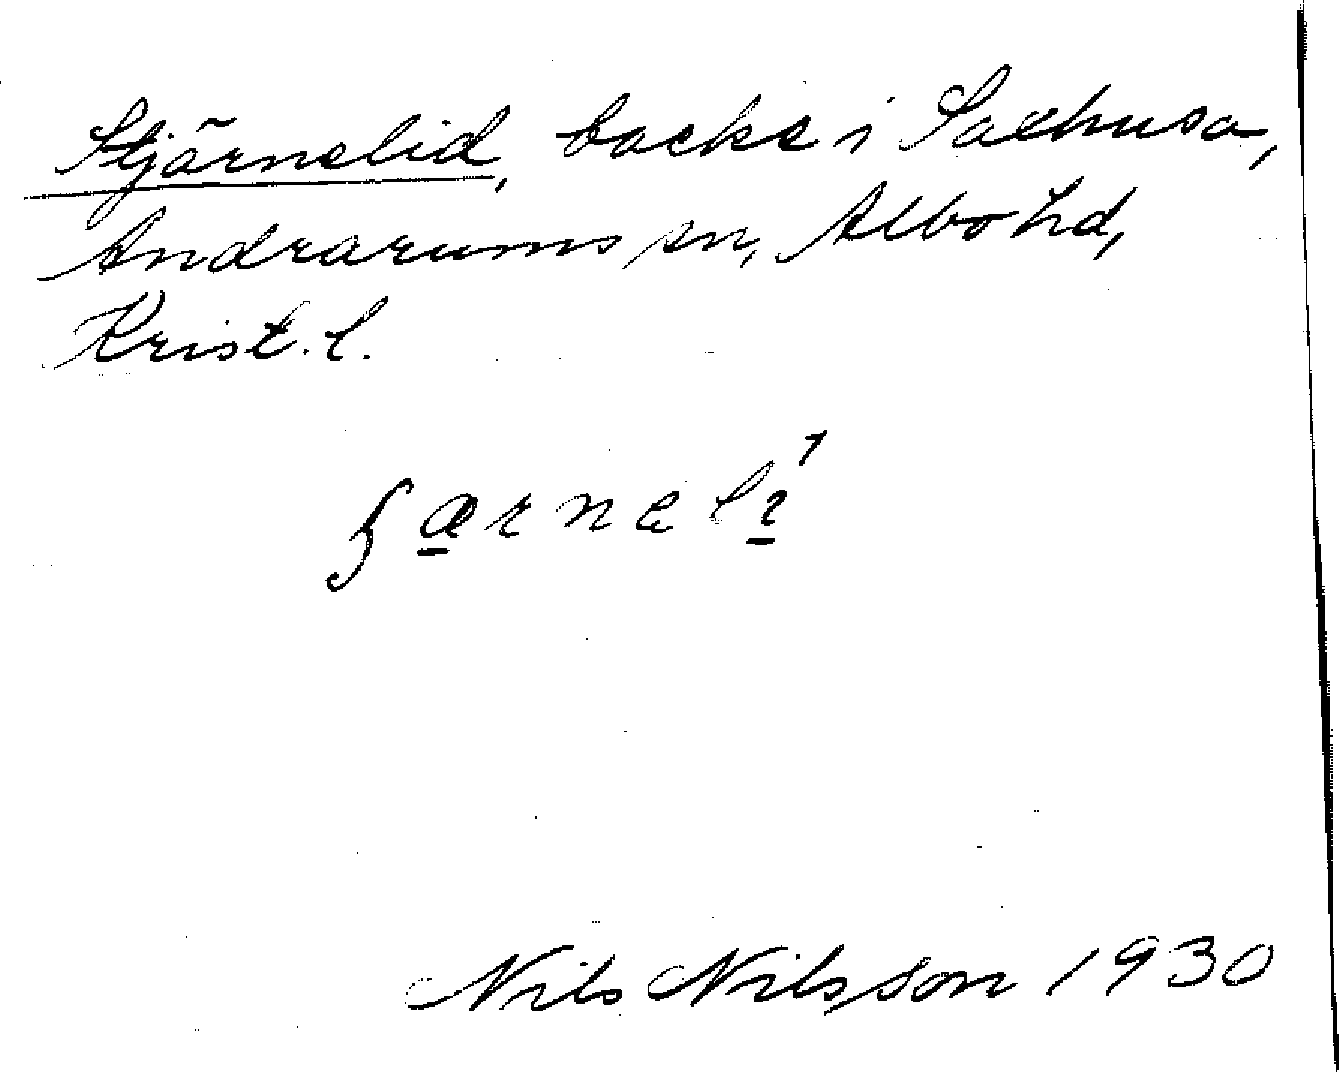 Stjärnelid, backe i Saxhusa,
Andrarums sn, Albo hd,
Krist. l.
Nils Nilsson 1930